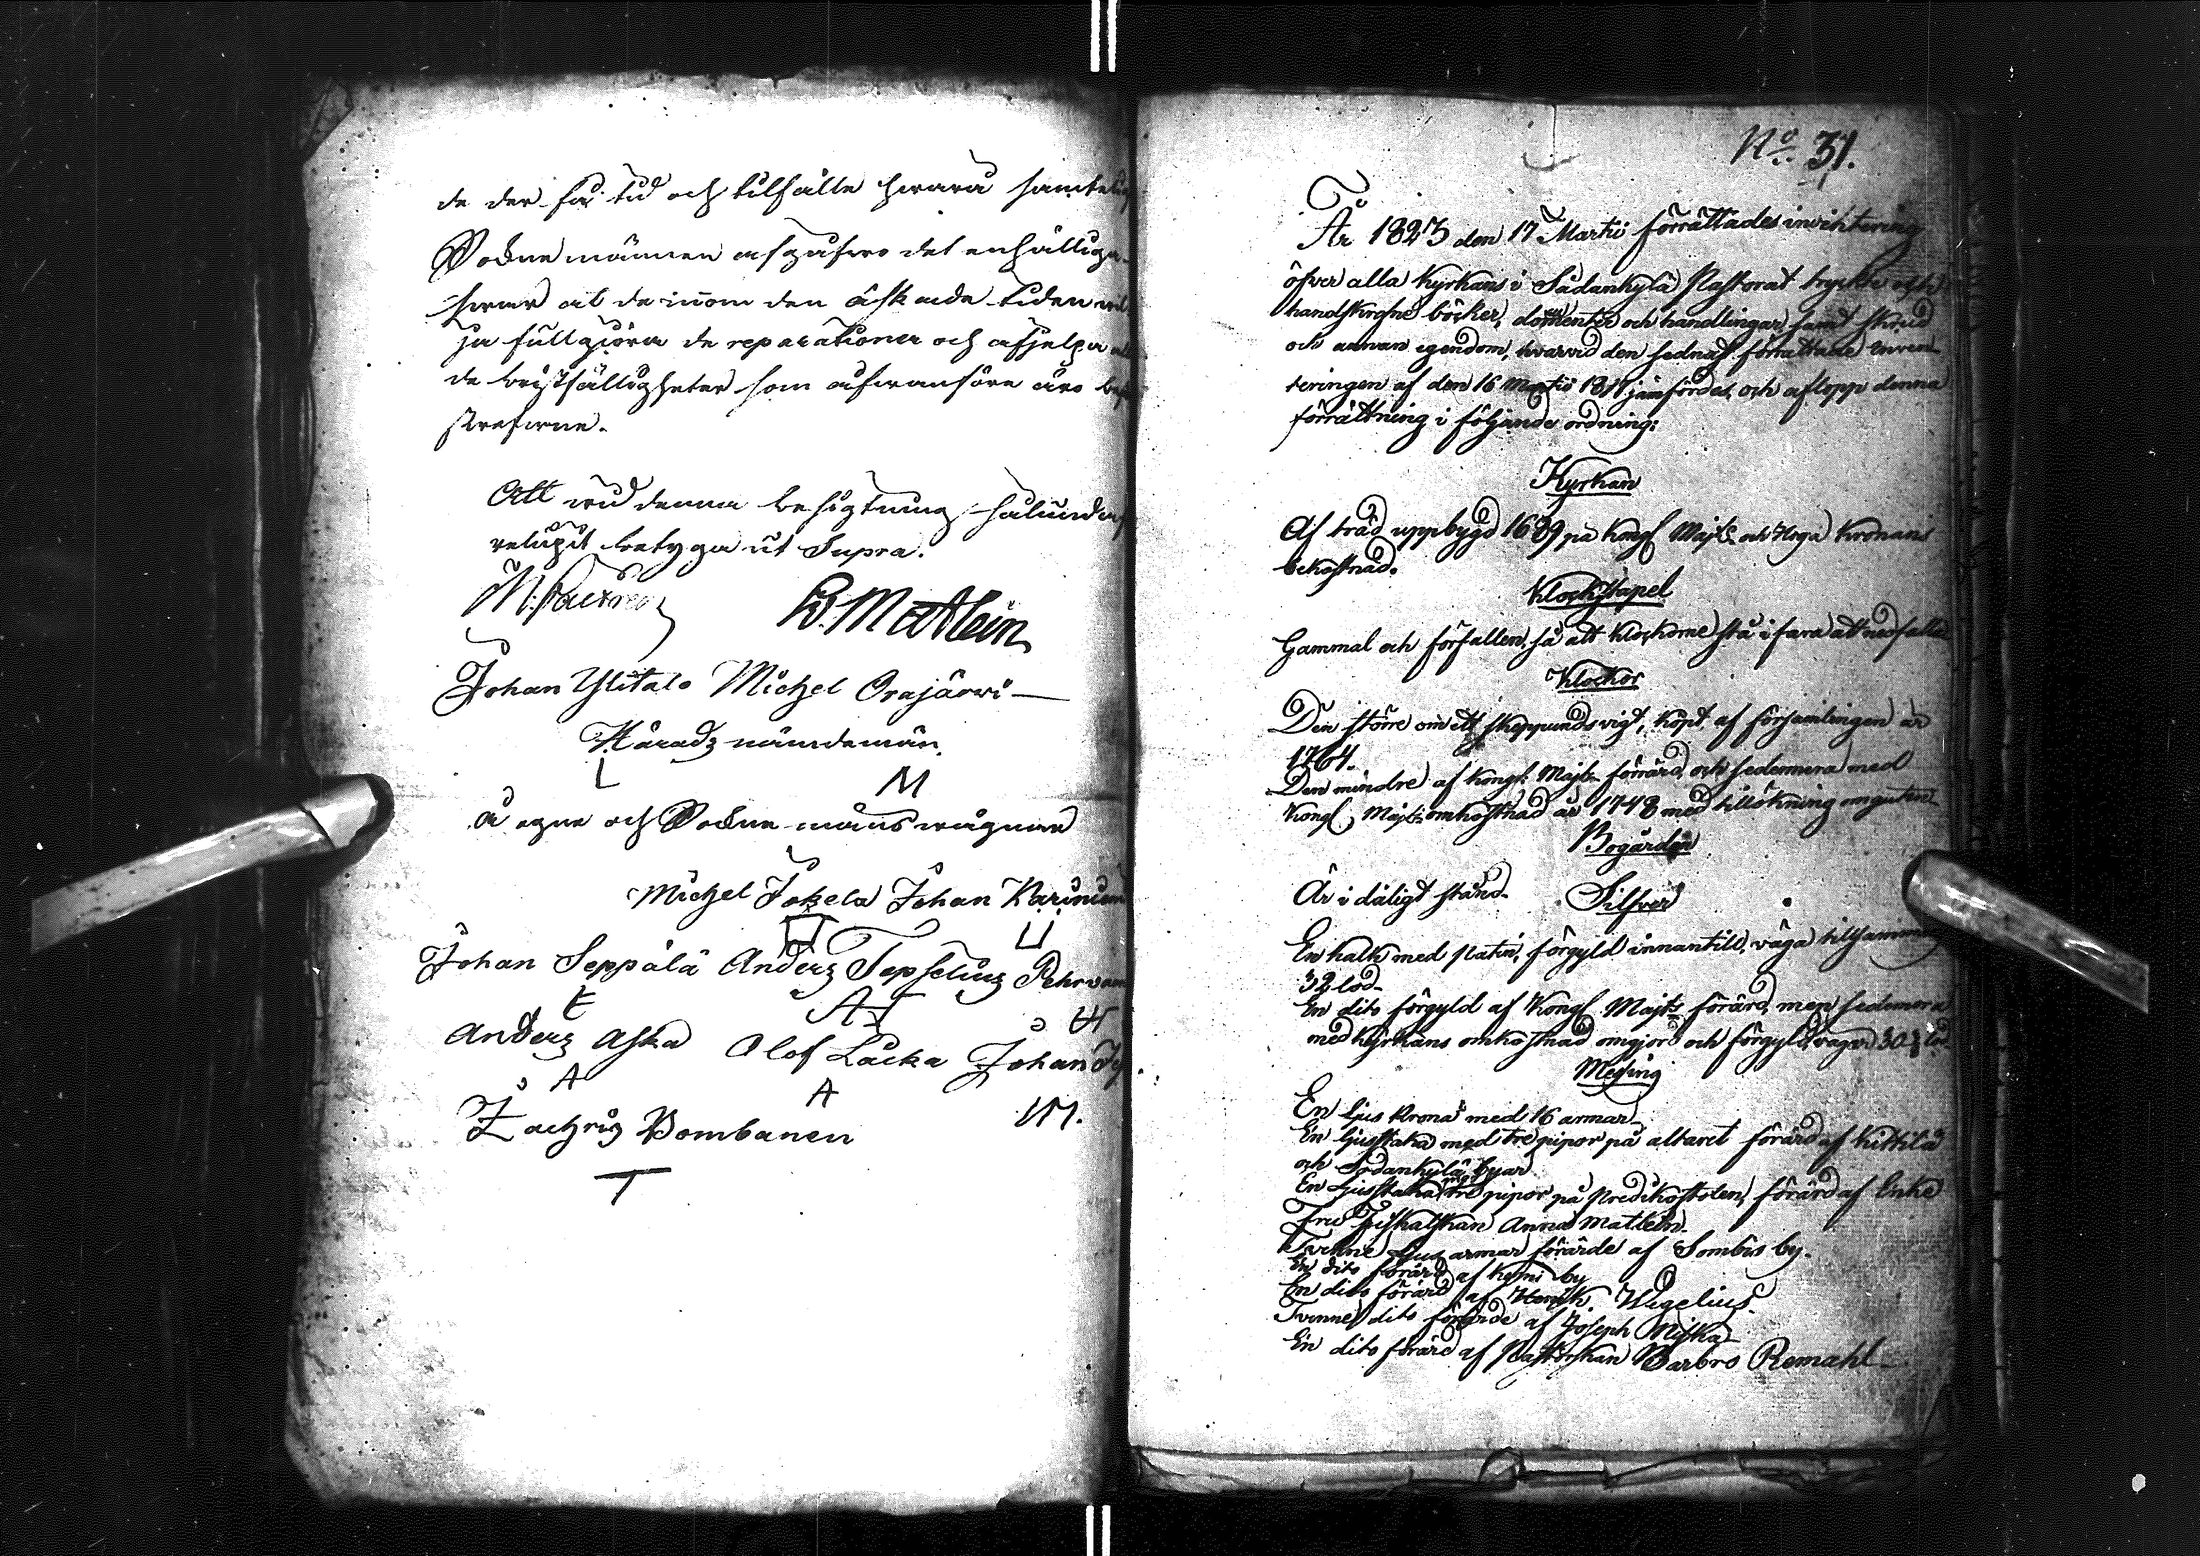 de der få tid och tilfälle swara samtelig
Sockne männen afgufwo det enhälliga
swar at de inom den äskade tiden wel
ja fullgiöra de reparationer och afhjelpa al
de bristfälligheter som ofwanföre äro bes
krefwne.
Att wid denna besigtning sålunda
relugit betyga ut Supra.
E. Mattlein
Johan Ylitalo Michel Orajärwi
Härads nämdemän.
L M
å egne och Sockne mäns wägnar
Michel Jokela Johan Kariniemi
Johan Seppälä Anders Tepselius Pehr
Anders Aska Olof Läcka Johan
A A
Zachris Pombanen
T
No 31.
År 1823 den 17 Martii förrättades inventering
öfver alla kyrkans i Sådankylä Pastorat tryckte och
handskrefne böcker, documenter och handlingar, samt skrud
och annan egendom, hvarvid den sednast förrättade inven
teringen af den 16 Martii 1817 jämfördes, och aflopp denna
förrättning i följande ordning:
Kyrkan
Af träd uppbygd 1689 på Kongl Majts och Höga Kronans
bekostnad.
Klockstapel
Gammal och förfallen, så att klockorne stå i fara att nedfalla
Klockor
Den större om ett skeppunds vigt, köpt af församlingen år
1764.
Den mindre af Kongl. Majts förärd, och sedermera med
Kongl. Majts omkostnad år 1748 med tillökning omguten
Bogården
Är i dåligt stånd.
Silfver
En kalk med Paten, förgyld innantill, väga tillsamman
32 lod.
En dito förgyld af Kongl Majts förärd, men sedemera
med kyrkans omkostnad omgjord och förgyld, väger 30 1/2 lod
Messing
En Ljus krona med 16 armar
En ljusstaka med tre pipor på altaret förärd af Kittilä
och Sodankylä byar
En Ljusstaka tre pipor på Predikostolen, förärd af Enke
Fru Fiskalskan Anna Matlein.
Tvenne Ljus armar förärde af Sombis by.
En dito förärd af Kemi by
En dito förärd af Henrik Wigelius.
Tvenne dito förärde af Joseph Niska
En dito förärd af Pastorskan Barbro Remahl